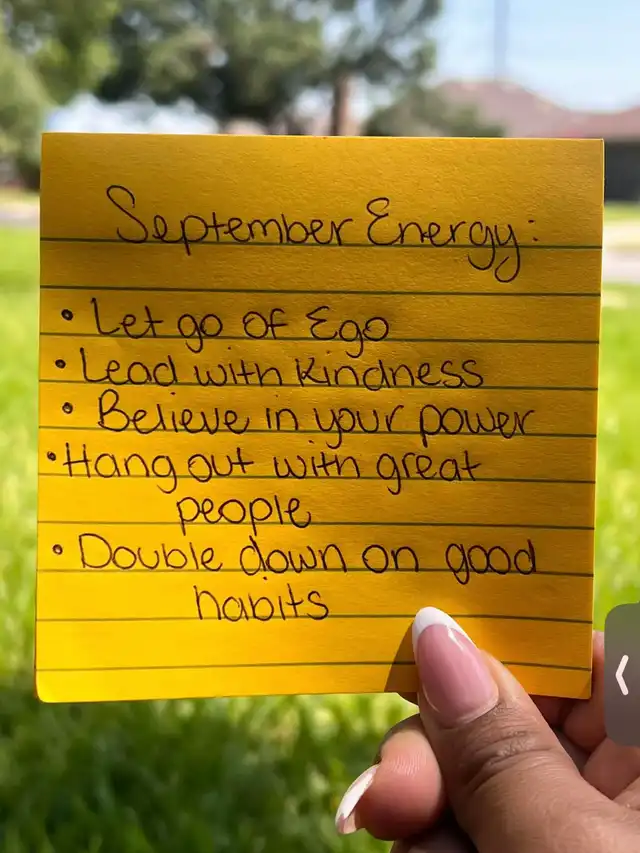 September Energy:
• Let go of Ego
• Lead with Kindness
• Believe in your power
• Hang out with great
people
• Double down on good
habits